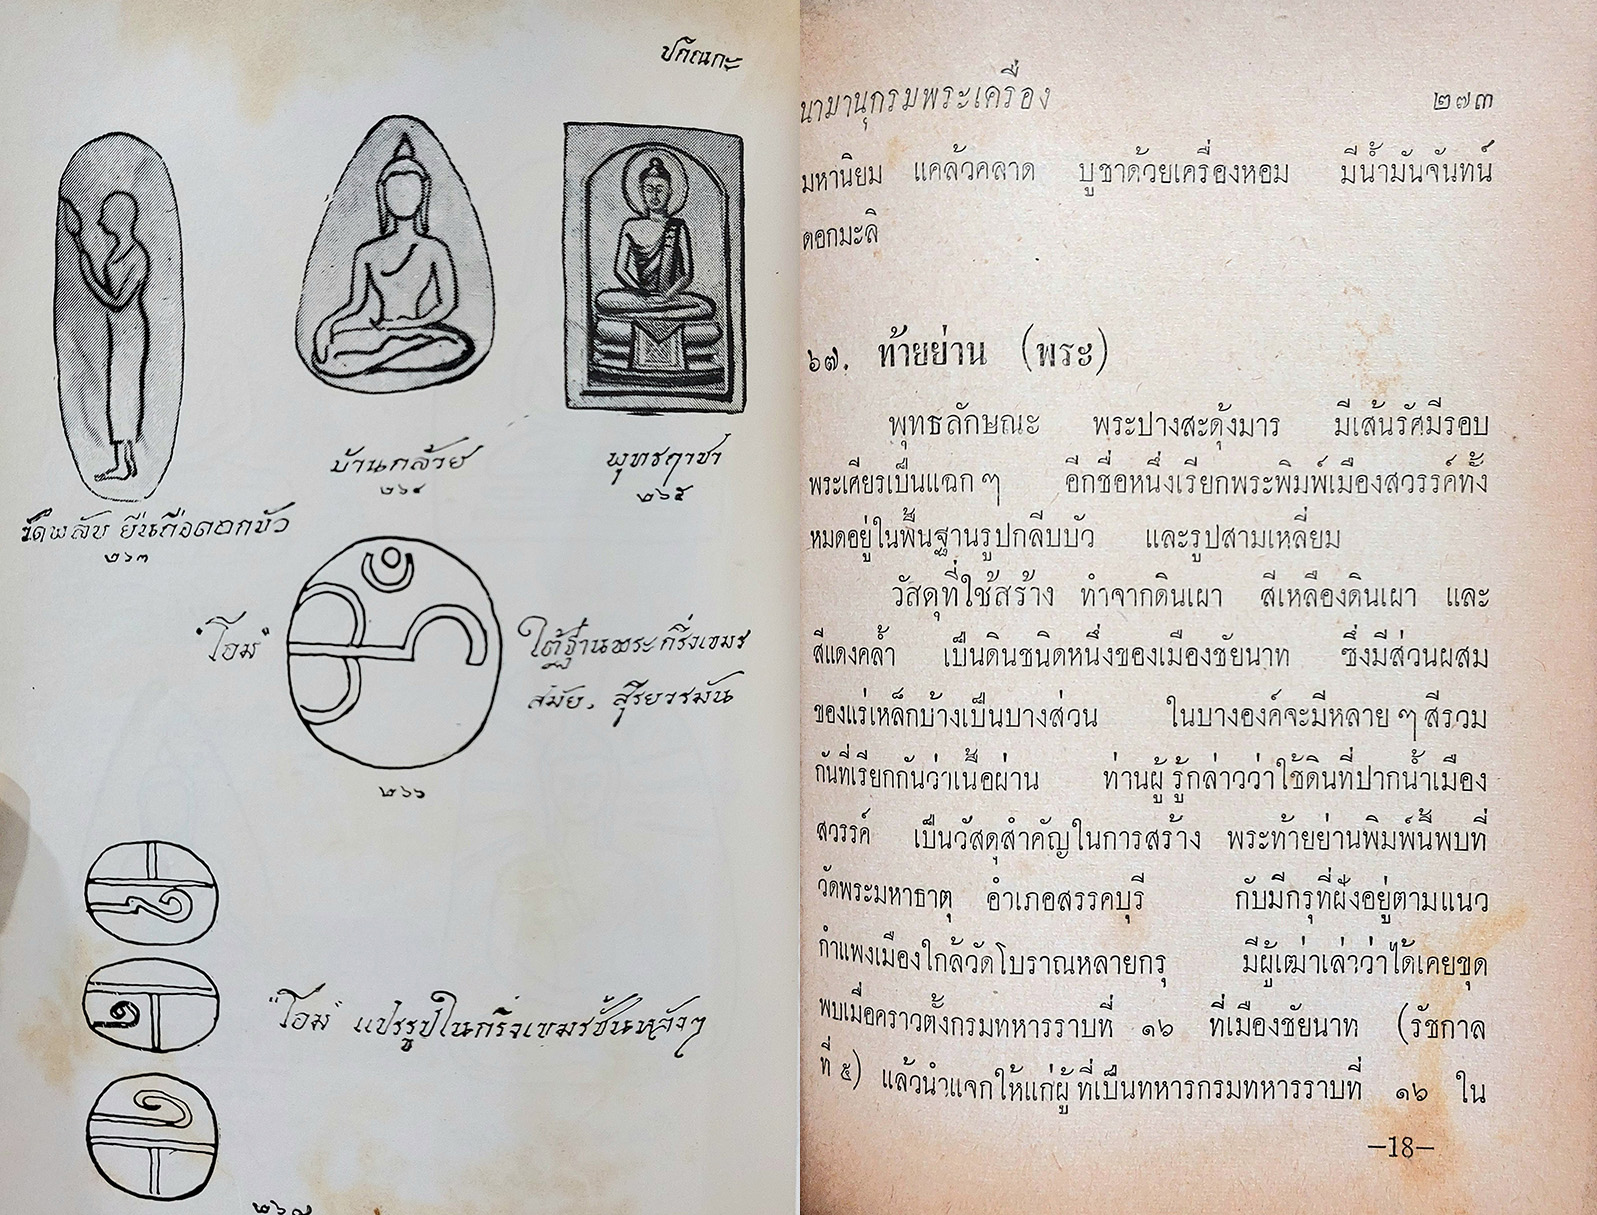 ปกิณกะ
บ้านกล้วย
๒๖๔
พุทธฤาชา
๒๖๕
วัดพลับ ยืนถือดอกบัว
๒๖๓
"โอม"
ใต้ฐานพระกริ่งเขมร
สมัย. สุริยวรมัน
๒๖๖
"โอม" แปรรูปในกริ่งเขมรชั้นหลังๆ
นามานุกรมพระเครื่อง ๒๗๓
มหานิยม แคล้วคลาด บูชาด้วยเครื่องหอม มีน้ำมันจันทน์
ดอกมะลิ
๖๗. ท้ายย่าน (พระ)
พุทธลักษณะ พระปางสะดุ้งมาร มีเส้นรัศมีรอบ
พระเศียรเป็นแฉก ๆ อีกชื่อหนึ่งเรียกพระพิมพ์เมืองสวรรค์ทั้ง
หมดอยู่ในพื้นฐานรูปกลีบบัว และรูปสามเหลี่ยม
วัสดุที่ใช้สร้าง ทำจากดินเผา สีเหลืองดินเผา และ
สีแดงคล้ำ เป็นดินชนิดหนึ่งของเมืองชัยนาท ซึ่งมีส่วนผสม
ของแร่เหล็กบ้างเป็นบางส่วน ในบางองค์จะมีหลาย ๆ สีรวม
กันที่เรียกกันว่าเนื้อผ่าน ท่านผู้รู้กล่าวว่าใช้ดินที่ปากน้ำเมือง
สวรรค์ เป็นวัสดุสำคัญในการสร้าง พระท้ายย่านพิมพ์นี้พบที่
วัดพระมหาธาตุ อำเภอสรรคบุรี กับมีกรุที่ฝังอยู่ตามแนว
กำแพงเมืองใกล้วัดโบราณหลายกรุ มีผู้เฒ่าเล่าว่าได้เคยขุด
พบเมื่อคราวตั้งกรมทหารราบที่ ๑๖ ที่เมืองชัยนาท (รัชกาล
ที่ ๕) แล้วนำแจกให้แก่ผู้ที่เป็นทหารกรมทหารราบที่ ๑๖ ใน
–18–